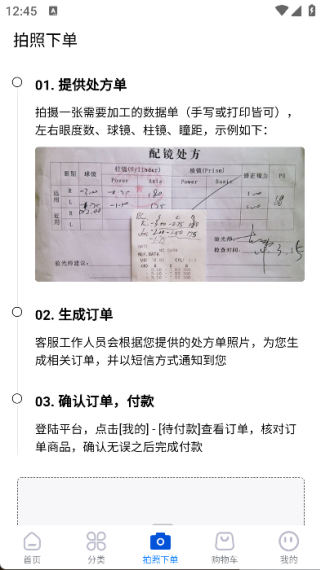 12:45
拍照下单
01. 提供处方单
拍摄一张需要加工的数据单（手写或打印皆可），
左右眼度数、球镜、柱镜、瞳距，示例如下：
配镜处方
球镜
柱镜(Cylinder)
棱镜(Prism)
矫正视力
PD
Power
Axis
Power
Basis
R
L
R
L
验光师
检查时间:
验光师建议:
02. 生成订单
客服工作人员会根据您提供的处方单照片，为您生
成相关订单，并以短信方式通知到您
03. 确认订单，付款
登陆平台，点击[我的] - [待付款]查看订单，核对订
单商品，确认无误之后完成付款
首页
分类
拍照下单
购物车
我的